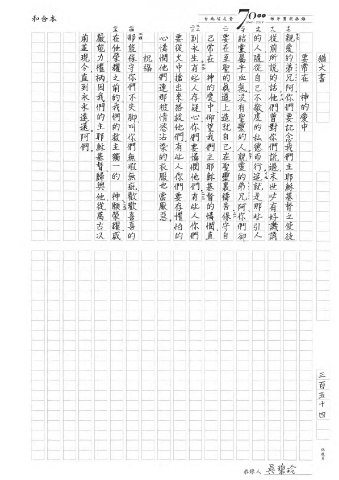 和合本
7000
猶大書
要常在　神的愛中
親愛的弟兄阿你們要記念我們主耶穌基督之使徒
從前所說的話他們曾對你們說過末世必有好譏誚
的人隨從自己不敬虔的私慾而行這就是那些引人
結黨屬乎血氣沒有聖靈的人親愛的弟兄阿你們卻
要在至聖的真道上造就自己在聖靈裏禱告保守自
己常在　神的愛中仰望我們主耶穌基督的憐憫直
到永生有些人存疑心你們要憐憫他們有些人你們
要從火中搶出來搭救他們有些人你們要存懼怕的
心憐憫他們連那被情慾沾染的衣服也當厭惡
祝福
那能保守你們不失腳叫你們無瑕無疵歡歡喜喜的
在他榮耀之前的我們的救主獨一的　神願榮耀威
嚴能力權柄因我們的主耶穌基督歸與他從萬古以
前並現今直到永永遠遠阿們
三百五十四
抄錄人